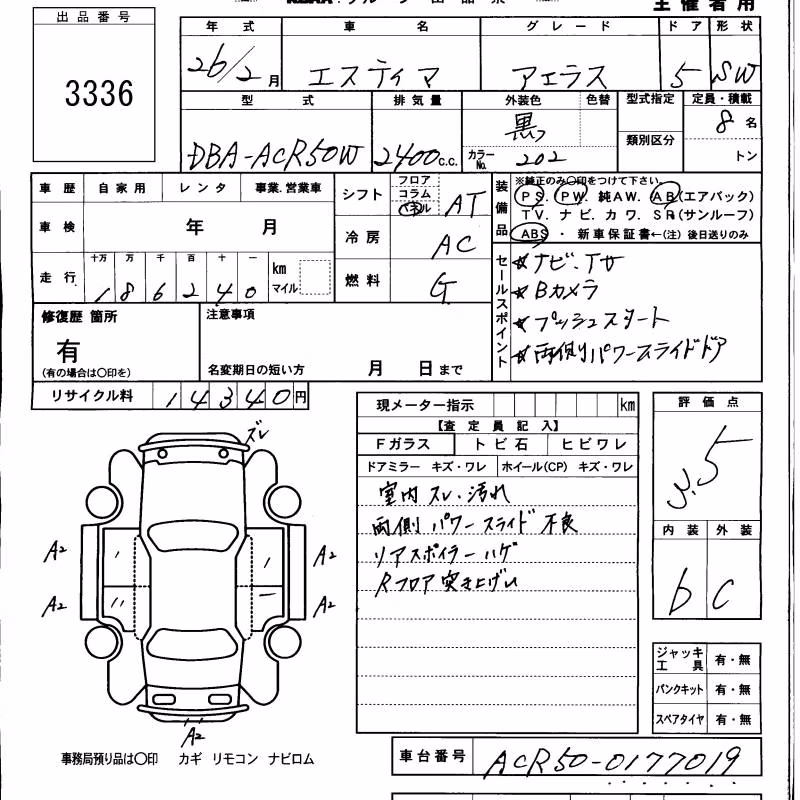 主催者用
出品番号
3336
年式 車名 グレード ドア 形状
26/2月 エスティマ アエラス 5 SW
型式 排気量 外装色 色替 型式指定 定員・積載
DBA-ACR50W 2400c.c. 黒 8名
カラーNo. 202 類別区分 トン
車歴 自家用 レンタ 事業.営業車
車検 年 月
走行 十万 万 千 百 十 一
1 8 6 2 4 0 km マイル
シフト フロア コラム パネル AT
冷房 AC
燃料 G
装備品
※純正のみ〇印をつけて下さい。
PS. PW. 純AW. AB(エアバック)
TV. ナビ. カワ. SR(サンルーフ)
ABS ・ 新車保証書←(注) 後日送りのみ
セールスポイント
☆ナビ.TV
☆Bカメラ
☆プッシュスタート
☆両側パワースライドドア
修復歴 箇所
有
(有の場合は〇印を)
注意事項
名変期日の短い方 月 日まで
リサイクル料 14340円
現メーター指示 km
【査定員記入】
Fガラス トビ石 ヒビワレ
ドアミラー キズ・ワレ ホイール(CP) キズ・ワレ
室内 スレ.汚れ
両側 パワースライド 不良
リアスポイラー ハゲ
Rフロア突き上げ
評価点
3.5
内装 外装
b C
ズレ
A2 A2
A2 A2
A2
ジャッキ 工具 有・無
パンクキット 有・無
スペアタイヤ 有・無
事務局預り品は〇印 カギ リモコン ナビロム
車台番号 ACR50-0177019